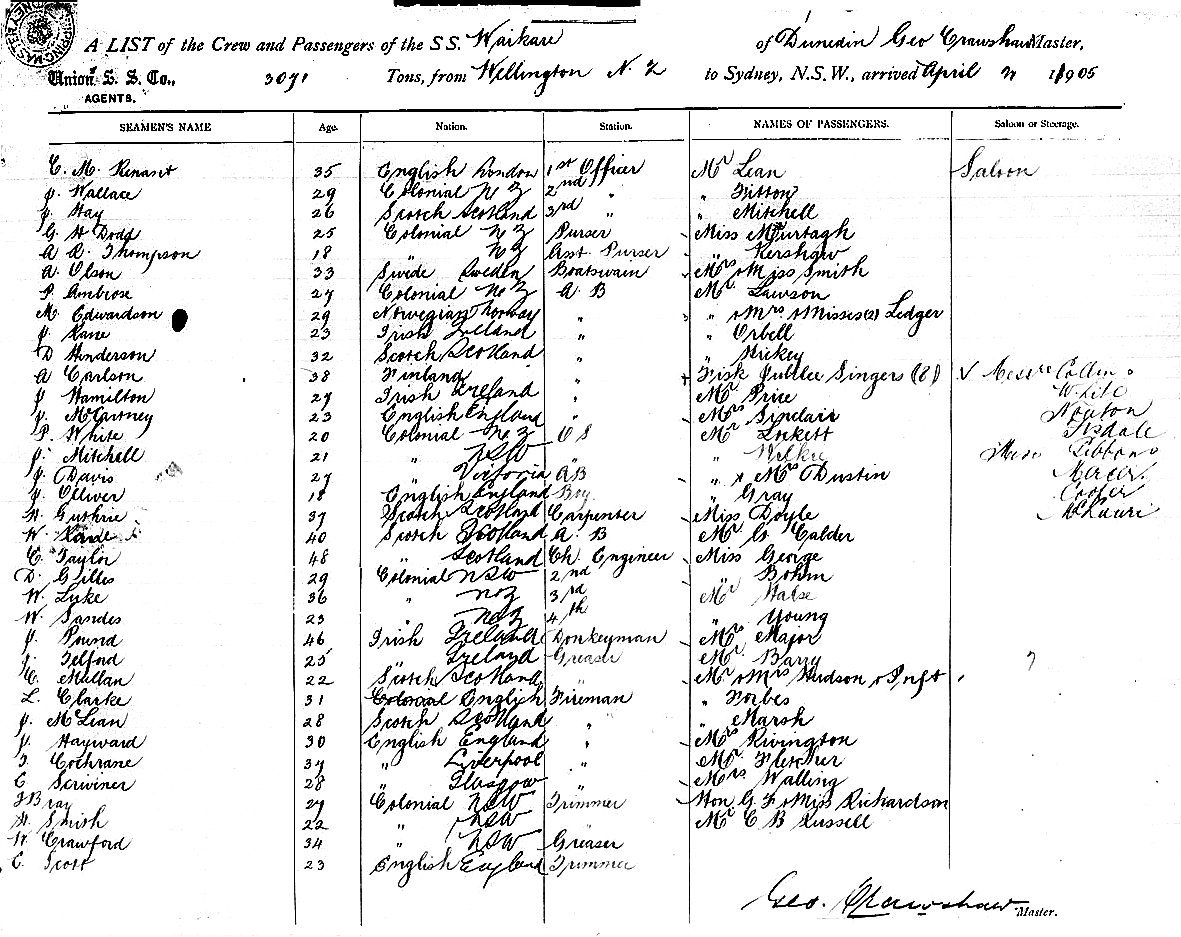 A LIST of the Crew and Passengers of the S.S. Waikare of Dunedin Geo Crawshaw Master,
Union S. S. Co., 3071 Tons, from Wellington N. Z to Sydney, N.S.W., arrived April 1905
AGENTS.
SEAMEN'S NAME Age. Nation. Station. NAMES OF PASSENGERS. Saloon or Steerage.
C. M. 35 English London 1st Officer Mr Lean Saloon
J. Wallace 29 Colonial N Z 2nd " " Fitton
J. Hay 26 Scotch Scotland 3rd " " Mitchell
G. H Dodd 25 Colonial N Z Purser Miss Murtagh
A. Thompson 18 " N Z Asst. Purser " Kershaw
A. Olson 33 Swede Sweden Boatswain Mrs & Miss Smith
P. Ambrose 27 Colonial N Z A B Mr Lawson
M. Edwardson 29 Norwegian Norway " " & Mrs & Misses (2) Ledger
J. Kane 23 Irish Ireland " " Orbell
D Henderson 32 Scotch Scotland " " Hickey
A Carlson 38 Finland " Fisk Jubilee Singers (8) Messrs Collins
J Hamilton 27 Irish Ireland " Mr Price White
J. McCartney 23 English England " Mrs Sinclair Newton
P. White 20 Colonial N Z O S Mr Lockett Tisdale
J. Mitchell 21 " N S W " Wilkie Misses Gibbons
J. Davis 27 " Victoria A B " & Mrs Dustin Mercer
J. Olliver 18 English England Boy " Gray Cooper
H. Guthrie 37 Scotch Scotland Carpenter Miss Doyle
W. 40 Scotch Scotland A. B Mr Calder
C. Taylor 48 " Scotland Ch. Engineer Miss George
D. Gilles 29 Colonial N S W 2nd " Bohm
W. Luke 36 " N Z 3rd Mr
W. Sandes 23 " N Z 4th " Young
J. Pound 46 Irish Ireland Donkeyman Mr Major
J. Telford 25 " Ireland Greaser Mr Barry
C. Mullan 22 Scotch Scotland " Mr & Mrs Hudson & Inft
L. Clarke 31 Colonial English Fireman " Forbes
J. McLean 28 Scotch Scotland " " Marsh
J. Hayward 30 English England " Mrs Rivington
J. Cochrane 37 " Liverpool " Mr Fletcher
C Scrivner 28 " Glasgow Mrs Walling
J Bray 27 Colonial N S W Trimmer Hon G F & Miss Richardson
H. Smith 22 " N S W Mr C B Russell
W Crawford 34 " N S W Greaser
C. Scott 23 English England Trimmer
Geo. Crawshaw Master.